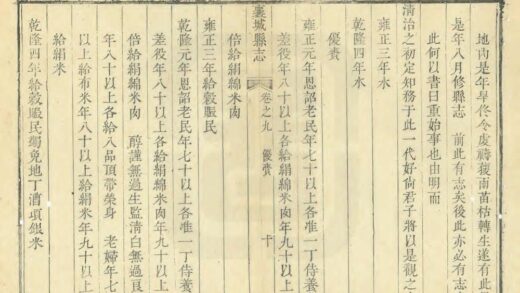 地内是年旱佟令虔禱獲雨苗枯轉生遂有此
是年八月修縣志　前此有志矣後此亦必有志
此何以書曰重始事也由明而
清治之初定知務于此一代好尚君子將以是觀之
雍正三年水
乾隆四年水
優賚
雍正元年恩詔老民年七十以上各准一丁侍養
差役年八十以上各給絹綿米肉年九十以上
襄城縣志
卷之九　優賚
十
倍給絹綿米肉
雍正三年給穀賑民
乾隆元年恩詔老民年七十以上各准一丁侍養
差役年八十以上各給絹綿米肉年九十以上
倍給絹綿米肉　醇謹無過生監清白無過良
年八十以上各給八品頂帶榮身　老婦年七
以上給布米年八十以上給絹米年九十以上
給絹米
乾隆四年給穀賑民蠲免地丁漕項銀米